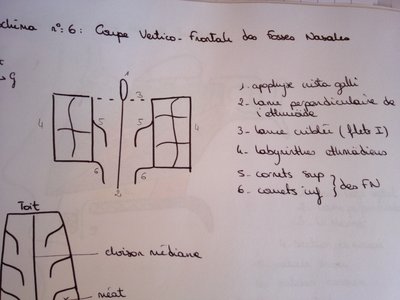 schéma n°6: Coupe Vertico-Frontale des Fosses Nasales
G
1
3
4
5
5
4
6
6
2
1. apophyse crista galli
2. lame perpendiculaire de
l'ethmoïde
3. lame criblée (filets I)
4. labyrinthes ethmoïdiens
5. cornets sup
6. cornets inf } des FN
Toit
cloison médiane
méat